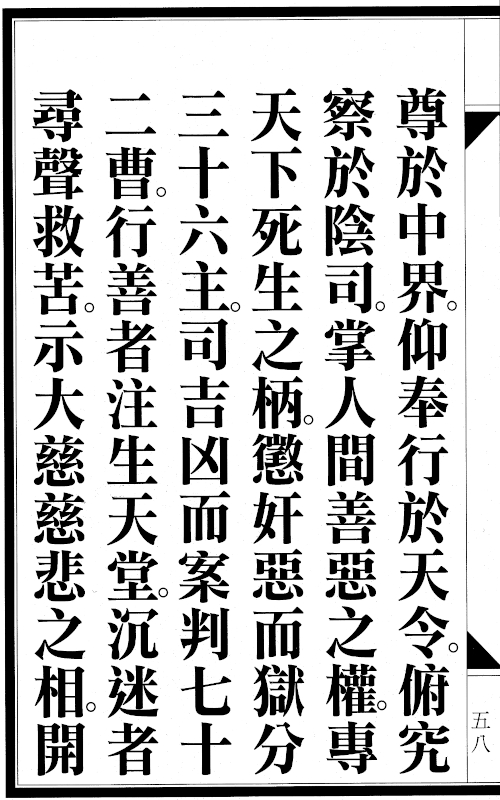 尊於中界。仰奉行於天令。俯究
察於陰司。掌人間善惡之權。專
天下死生之柄。懲奸惡而獄分
三十六主。司吉凶而案判七十
二曹。行善者注生天堂。沉迷者
尋聲救苦。示大慈慈悲之相。開
五八